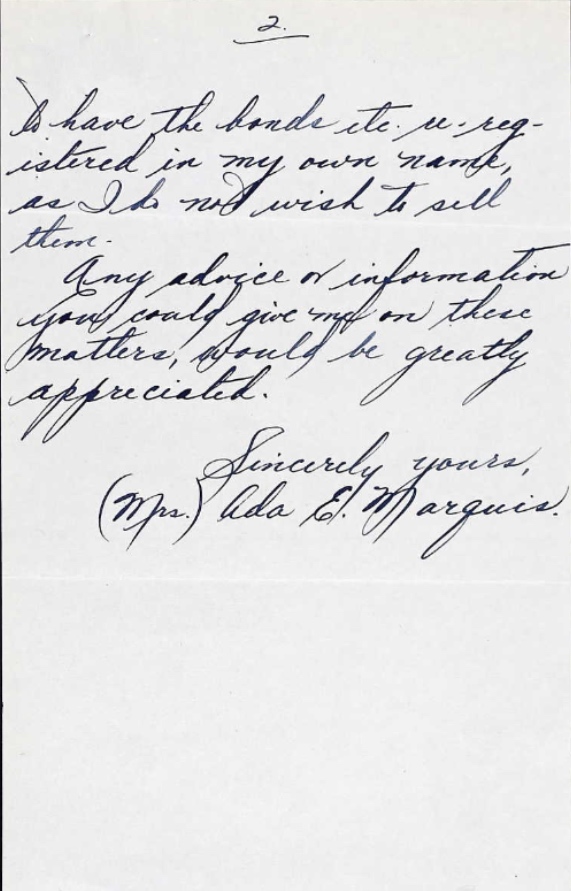 2.
to have the bonds etc. re-reg-
istered in my own name,
as I do not wish to sell
them.
Any advice or information
you could give me on these
matters, would be greatly
appreciated.
Sincerely yours,
(Mrs.) Ada E. Marquis.